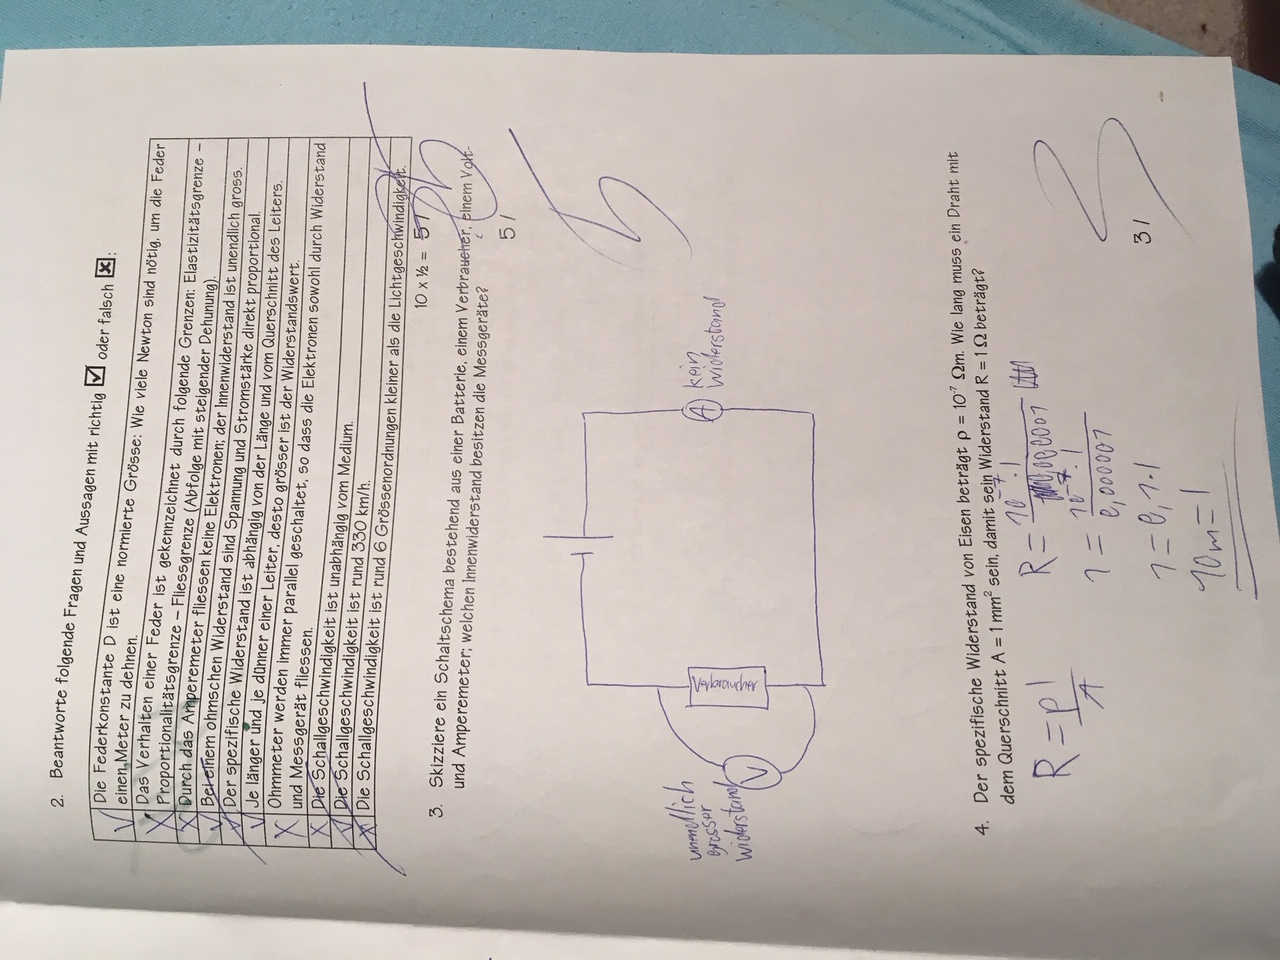 2. Beantworte folgende Fragen und Aussagen mit richtig ☑ oder falsch ☒:
√ Die Federkonstante D ist eine normierte Grösse: Wie viele Newton sind nötig, um die Feder
einen Meter zu dehnen.
X Das Verhalten einer Feder ist gekennzeichnet durch folgende Grenzen: Elastizitätsgrenze –
Proportionalitätsgrenze – Fliessgrenze (Abfolge mit steigender Dehunung).
X Durch das Amperemeter fliessen keine Elektronen; der Innenwiderstand ist unendlich gross.
√ Bei einem ohmschen Widerstand sind Spannung und Stromstärke direkt proportional.
√ Der spezifische Widerstand ist abhängig von der Länge und vom Querschnitt des Leiters.
√ Je länger und je dünner einer Leiter, desto grösser ist der Widerstandswert.
X Ohmmeter werden immer parallel geschaltet, so dass die Elektronen sowohl durch Widerstand
und Messgerät fliessen.
X Die Schallgeschwindigkeit ist unabhängig vom Medium.
√ Die Schallgeschwindigkeit ist rund 330 km/h.
X Die Schallgeschwindigkeit ist rund 6 Grössenordnungen kleiner als die Lichtgeschwindigkeit.
10 x ½ = 5 /
3. Skizziere ein Schaltschema bestehend aus einer Batterie, einem Verbraucher, einem Volt-
und Amperemeter; welchen Innenwiderstand besitzen die Messgeräte?
5 /
5
unendlich
grosser
widerstand
V
Verbraucher
A
kein
Widerstand
4. Der spezifische Widerstand von Eisen beträgt ρ = 10⁻⁷ Ωm. Wie lang muss ein Draht mit
dem Querschnitt A = 1 mm² sein, damit sein Widerstand R = 1 Ω beträgt?
R = ρl / A
R = 10⁻⁷ · l / 0,000001
1 = 10⁻⁷ · l / 0,000001
1 = 0,1 · l
10m = l
3 /
3